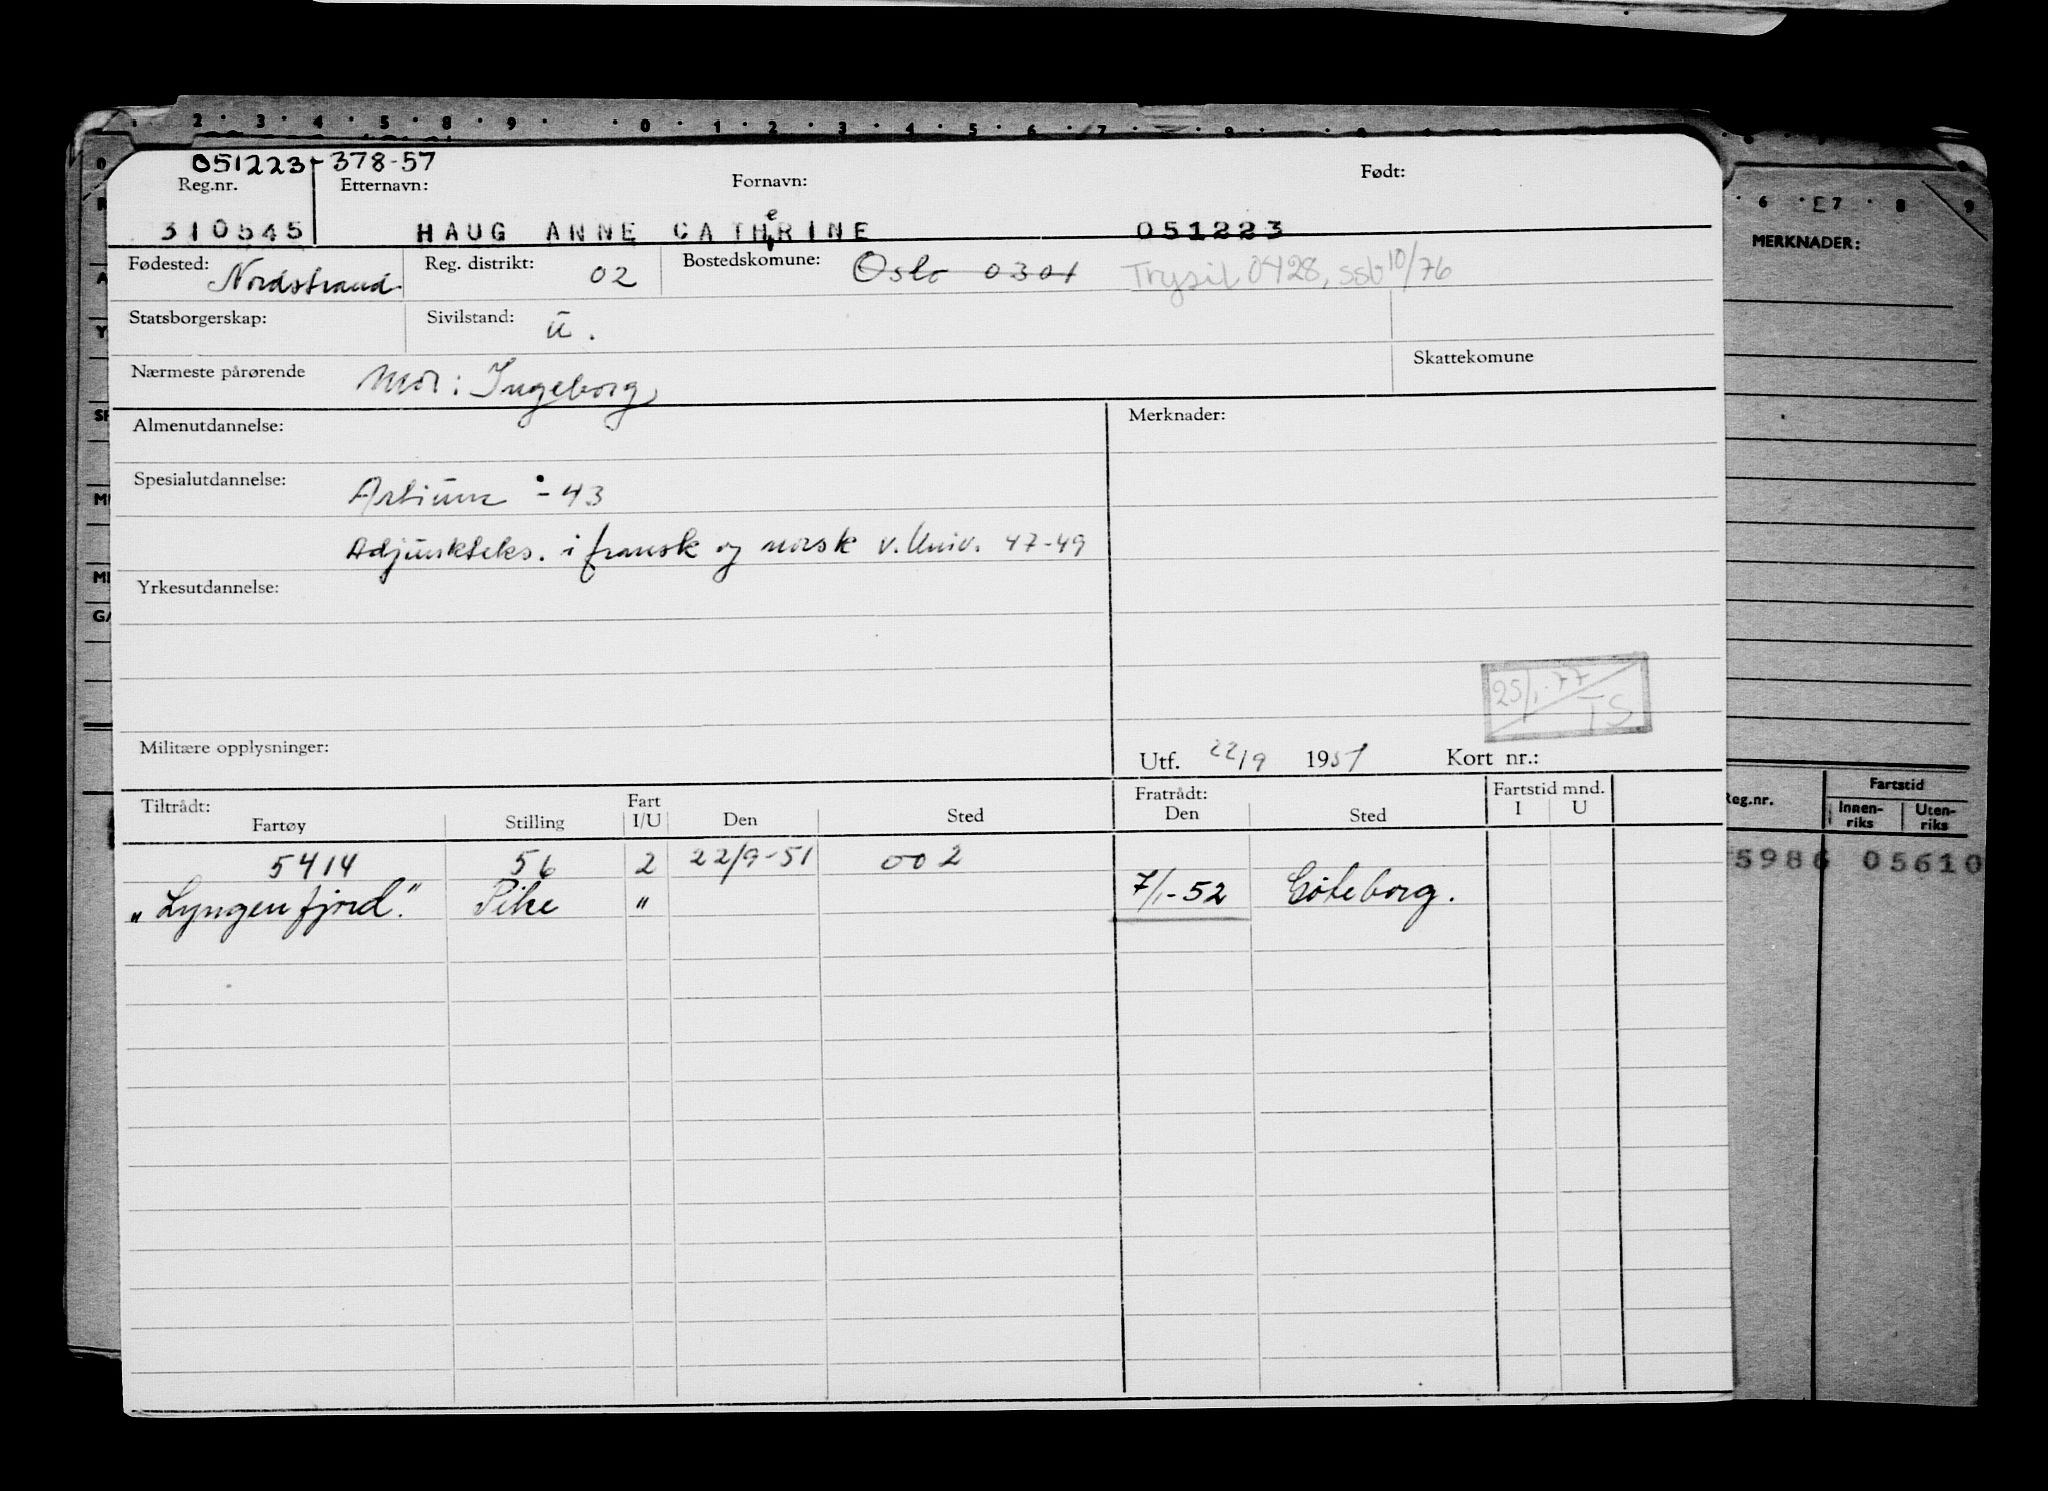 2 · 3 · 4 · 5 · 8 · 9 · 0 · 1 · 2 · 3 · 4 · 5 · 6 · 7
051223-378-57
Reg.nr. Etternavn: Fornavn: Født:
310545 HAUG ANNE CATHeRINE 051223
Fødested: Nordstrand Reg. distrikt: 02 Bostedskomune: Oslo 0301 Trysil 0428, ssb 10/76
Statsborgerskap: Sivilstand: u.
Nærmeste pårørende Mor: Ingeborg Skattekomune
Almenutdannelse: Merknader:
Spesialutdannelse: Artium - 43
Adjunkteks. i fransk og norsk v. Univ. 47-49
Yrkesutdannelse:
25/1-77 TS
Militære opplysninger: Utf. 22/9 1951 Kort nr.:
Tiltrådt: Fratrådt: Fartstid mnd.
Fartøy Stilling Fart I/U Den Sted Den Sted I U
5414 56 2 22/9-51 002
"Lyngenfjord." Pike " 7/1-52 Göteborg.
6 · 7 · 8 9
MERKNADER:
Reg.nr. Fartstid
Innen-riks Uten-riks
5986 05610